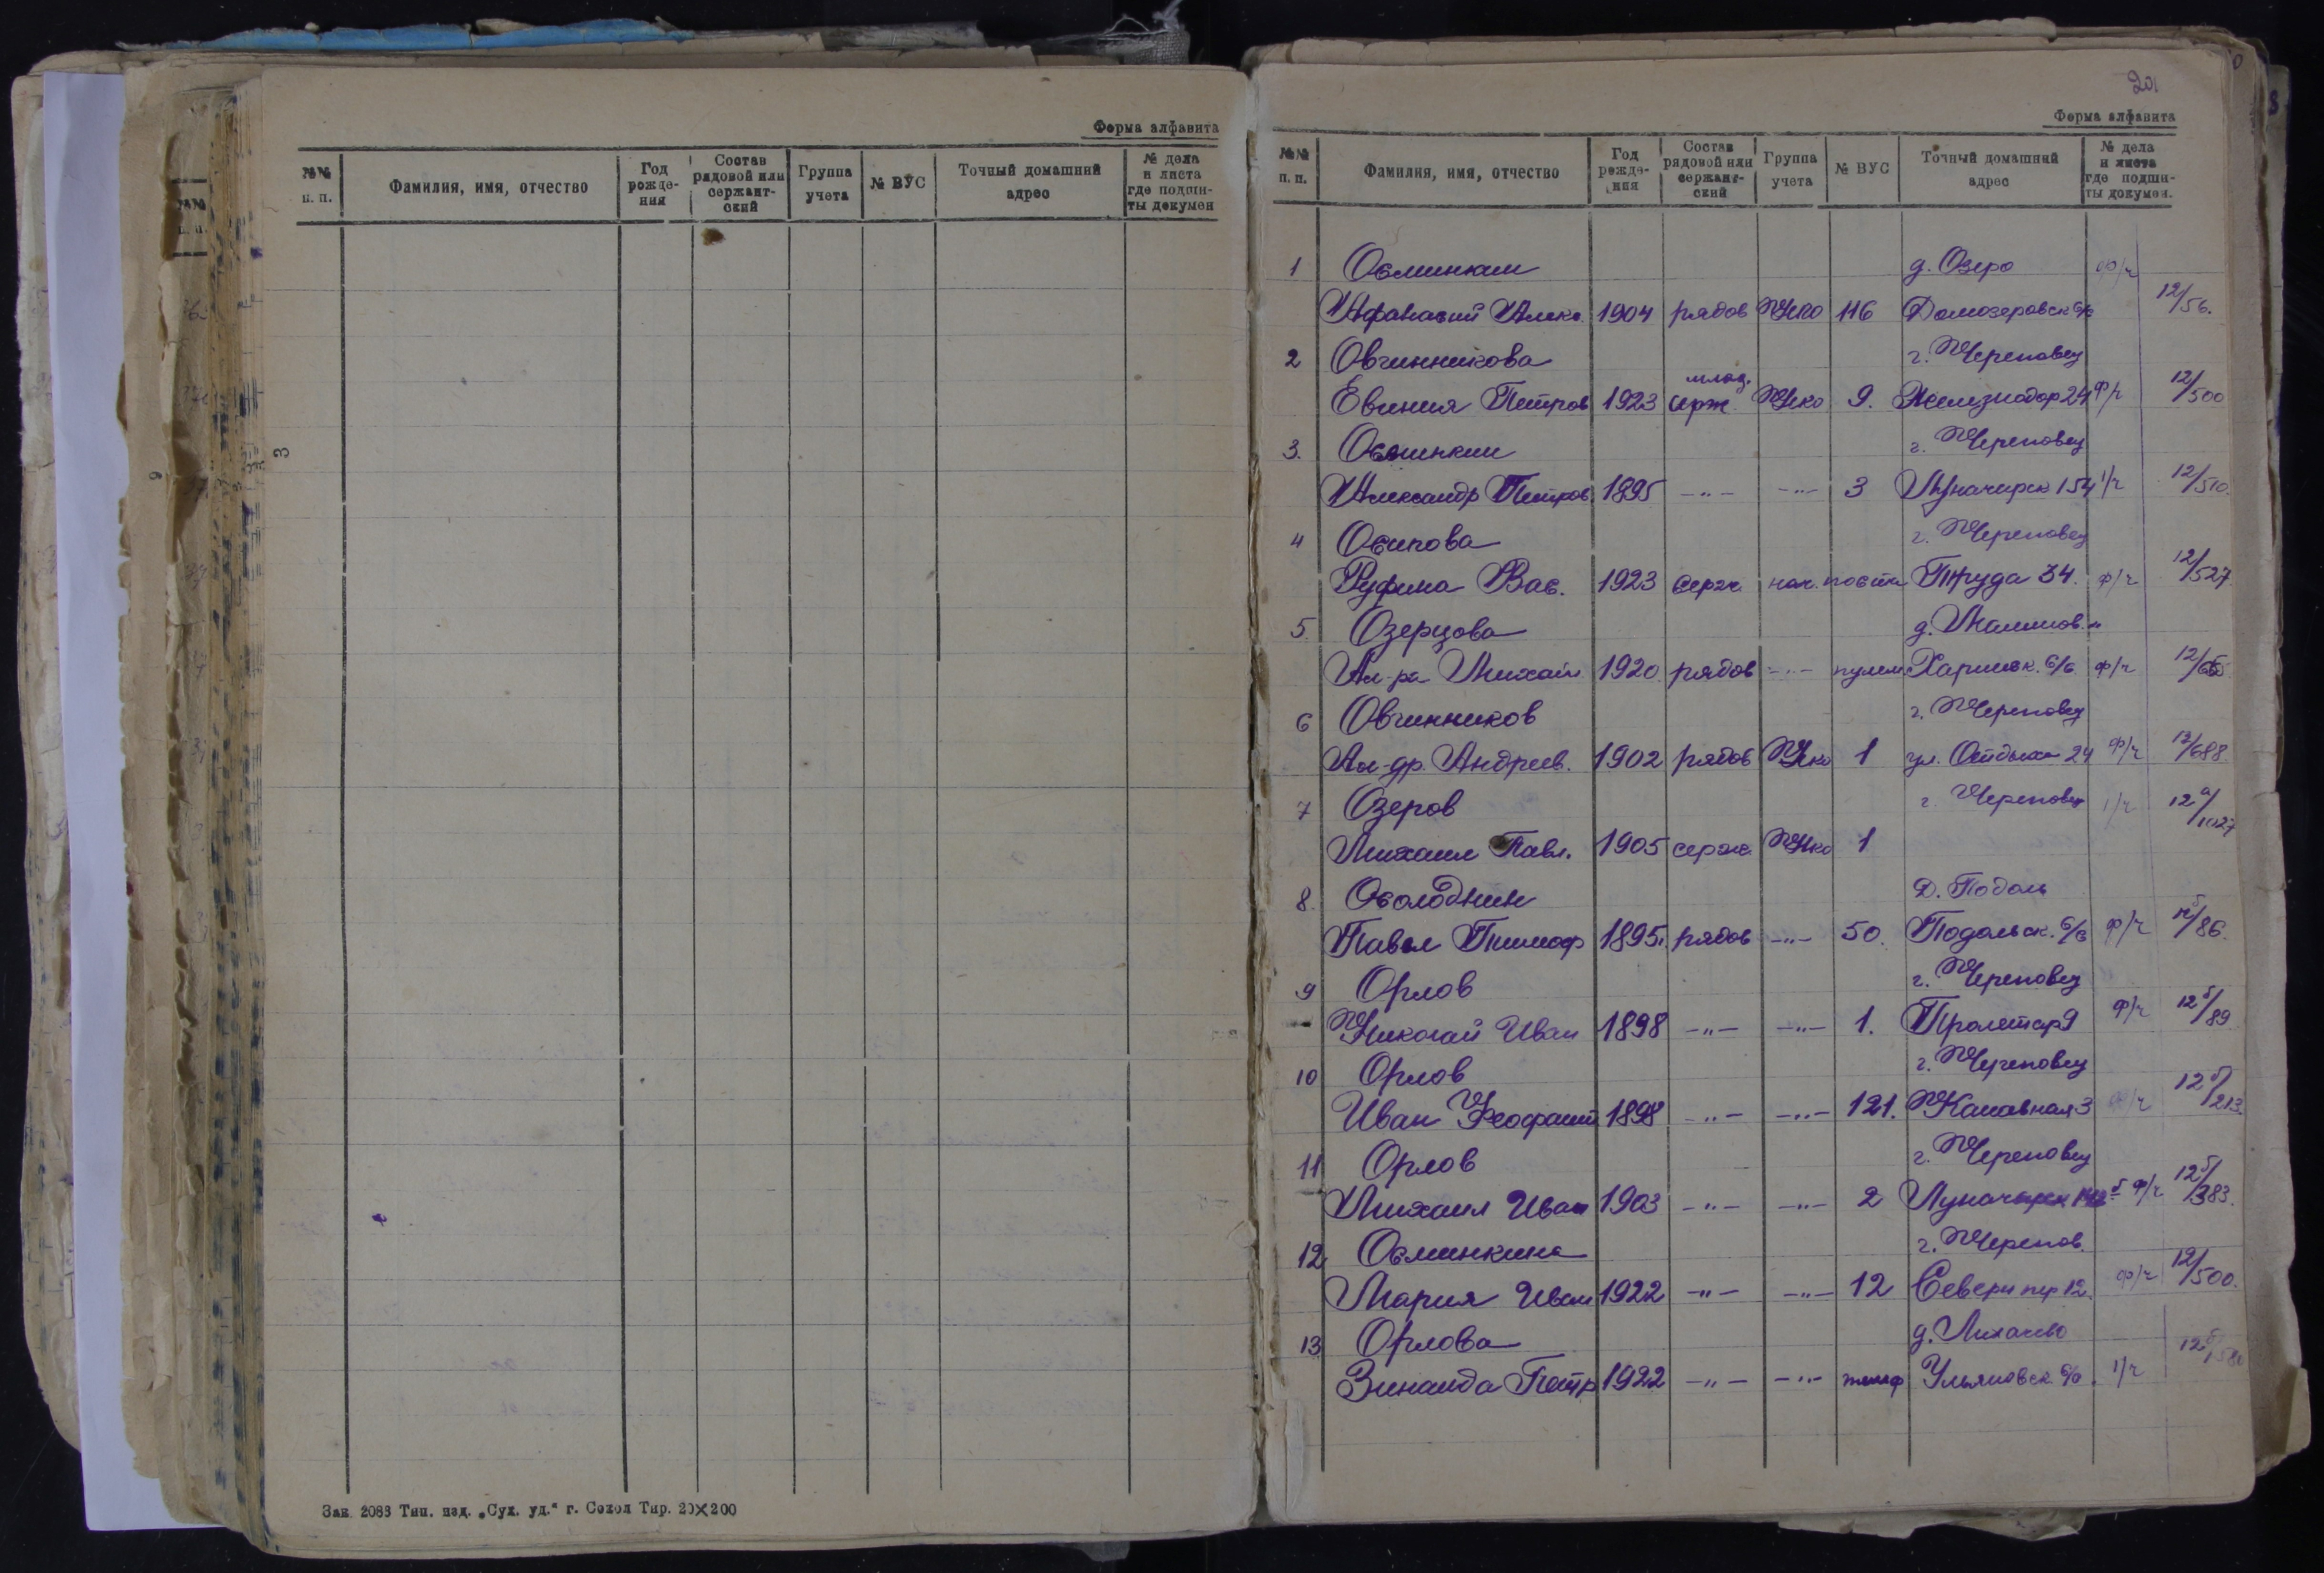 Форма алфавита
№№ п. п.
Фамилия, имя, отчество
Год рожде-ния
Состав рядовой или сержант-ский
Группа учета
№ ВУС
Точный домашний адрес
№ дела и листа где подши-ты докумен
3
Зак. 2083 Тип. изд. „Сух. уд.“ г. Сокол Тир. 20×200
201
Форма алфавита
№№ п. п.
Фамилия, имя, отчество
Год рожде-ния
Состав рядовой или сержант-ский
Группа учета
№ ВУС
Точный домашний адрес
№ дела и листа где подши-ты докумен.
1 Осминкин д. Озеро ф/ч
Афанасий Алекс. 1904 рядов НКО 116 Домозеровск с/с 12/56.
2 Овчинникова г. Череповец
Евгения Петров 1923 млад. серж. НКО 9. Железнодор 24 ф/ч 12/500
3. Осминкин г. Череповец
Александр Петров 1895 —"— —"— 3 Луначарск 154 1/ч 12/510.
4 Осипова г. Череповец
Руфима Вас. 1923 серж. нач. почты Труда 34. ф/ч 12/527.
5. Озерцова д.
Ал-ра Михайл 1920. рядов —"— пулем. с/с ф/ч
6 Овчинников г. Череповец
Ал-др. Андреев. 1902 рядов НКО 1 ул. Отдыха 24 ф/ч 12/688.
7 Озеров г. Череповец 1/ч 12а/1027
Михаил Павл. 1905 серж. НКО 1
8. Осолодкин Д. Подоль
Павел Тимоф 1895. рядов —"— 50. Подольск. с/с ф/ч 12б/86.
9 Орлов г. Череповец
Николай Иван 1898 —"— —"— 1. Пролетар 9 ф/ч 12б/89.
10 Орлов г. Череповец
Иван Феофант 1898 —"— —"— 121. Канавная 3 ф/ч 12б/213.
11 Орлов г. Череповец
Михаил Иван 1903 —"— —"— 2 Луначарск ф/ч 12б/383.
12 Осминкина г. Черепов.
Мария Иван 1922 —"— —"— 12 Северн пер 12. ф/ч 12/500.
13 Орлова д. Лихачево
Зинаида Петр 1922 —"— —"— телеф Ульяновск. с/с. 1/ч